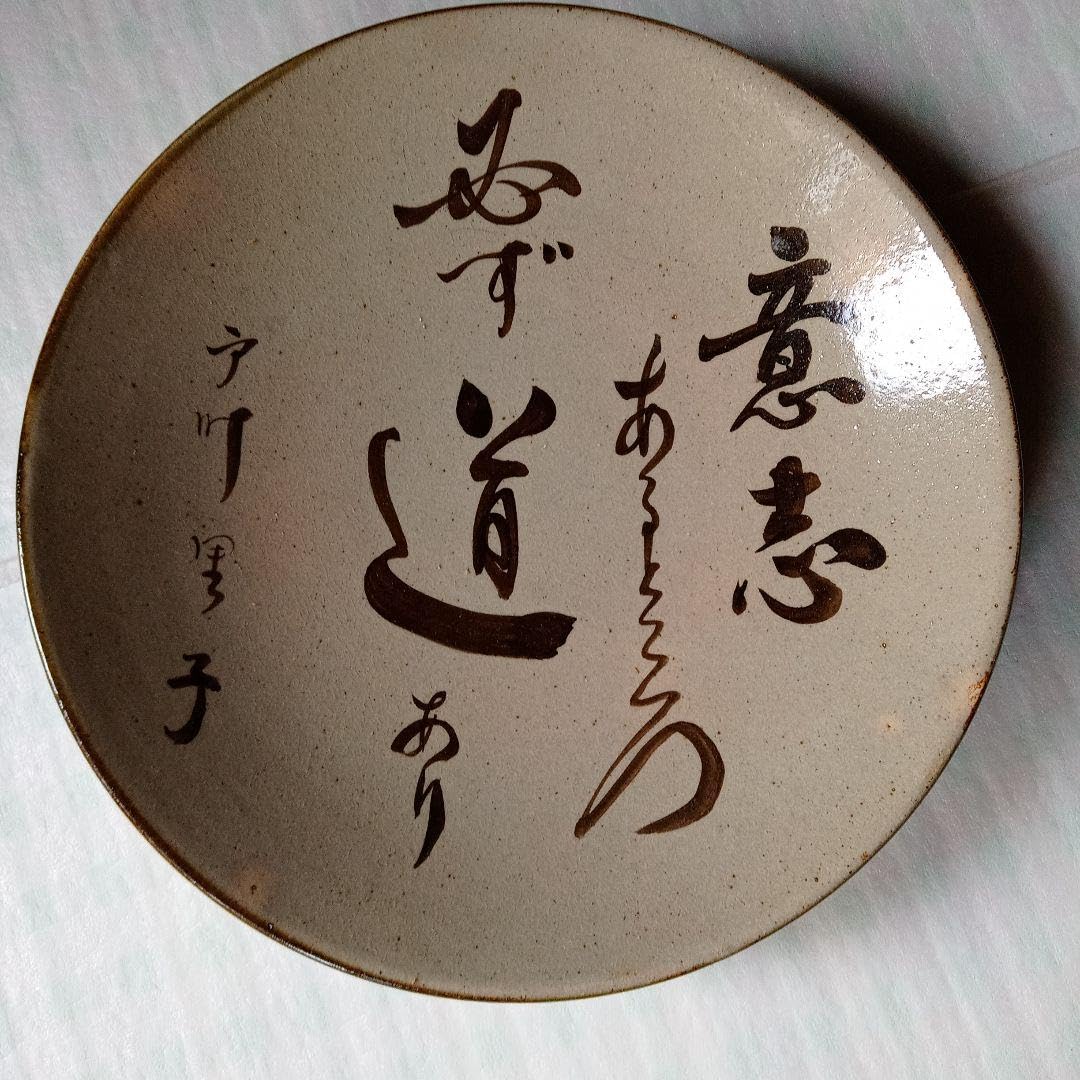 意志
あるところ
必ず道あり
里子